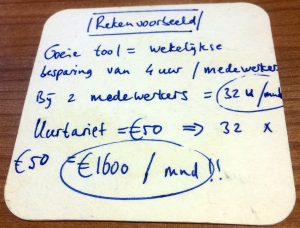 /Rekenvoorbeeld/
Goeie tool = wekelijkse
besparing van 4 uur / medewerker
Bij 2 medewerkers = 32 u / mnd
Uurtarief = €50 => 32 x
€50 = €1600 / mnd !!